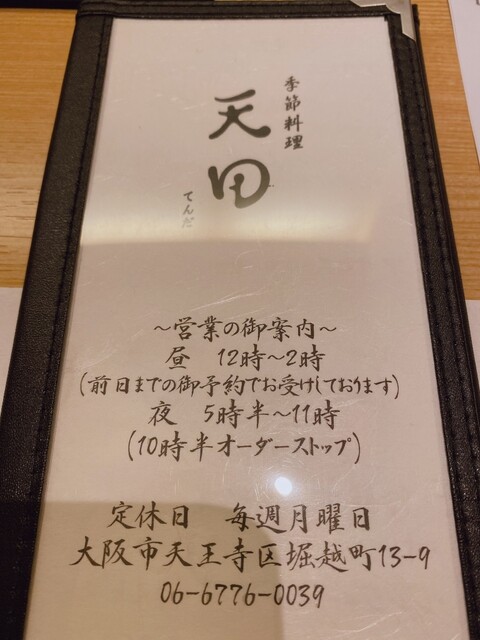 季節料理
天田
てんだ
～営業の御案内～
昼 12時～2時
(前日までの御予約でお受けしております)
夜 5時半～11時
(10時半オーダーストップ)
定休日 毎週月曜日
大阪市天王寺区堀越町13-9
06-6776-0039